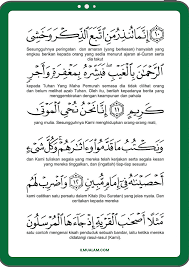 ١٠ إِنَّمَا تُنذِرُ مَنِ اتَّبَعَ الذِّكْرَ وَخَشِيَ
Sesungguhnya peringatan dan amaran (yang berkesan) hanyalah yang
engkau berikan kepada orang yang sedia menurut ajaran al-Quran serta
الرَّحْمَٰنَ بِالْغَيْبِ فَبَشِّرْهُ بِمَغْفِرَةٍ وَأَجْرٍ
kepada Tuhan Yang Maha Pemurah semasa dia tidak dilihat orang
dan semasa dia tidak melihat azab Tuhan. Oleh itu, berilah kepadanya berita yang
menggembirakan dengan keampunan dan pahala
كَرِيمٍ ١١ إِنَّا نَحْنُ نُحْيِي الْمَوْتَىٰ
yang mulia. Sesungguhnya Kami menghidupkan orang-orang mati,
وَنَكْتُبُ مَا قَدَّمُوا وَآثَارَهُمْ وَكُلَّ شَيْءٍ
dan Kami tuliskan segala yang mereka telah kerjakan serta segala kesan
yang mereka tinggalkan, dan (ingatlah) tiap-tiap sesuatu
أَحْصَيْنَاهُ فِي إِمَامٍ مُّبِينٍ ١٢ وَاضْرِبْ لَهُم
kami catitkan satu persatu dalam Kitab (Ibu Suratan) yang jelas nyata. Dan
ceritakan kepada mereka
مَّثَلًا أَصْحَابَ الْقَرْيَةِ إِذْ جَاءَهَا الْمُرْسَلُونَ
satu contoh mengenai kisah penduduk sebuah bandar, iaitu ketika mereka
didatangi rasul-rasul (Kami).
ILMUALAM.COM